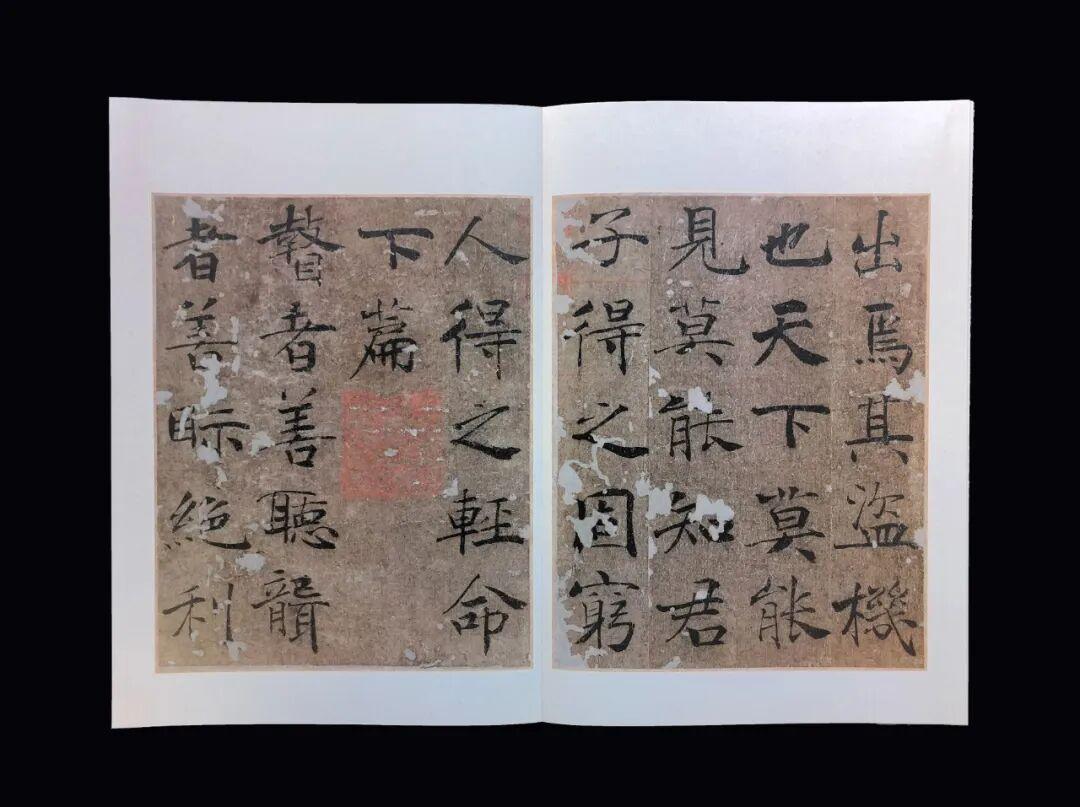 出焉其盜機
也天下莫能
見莫能知君
子得之固窮
人得之輕命
下篇
瞽者善聽聾
者善眎絶利